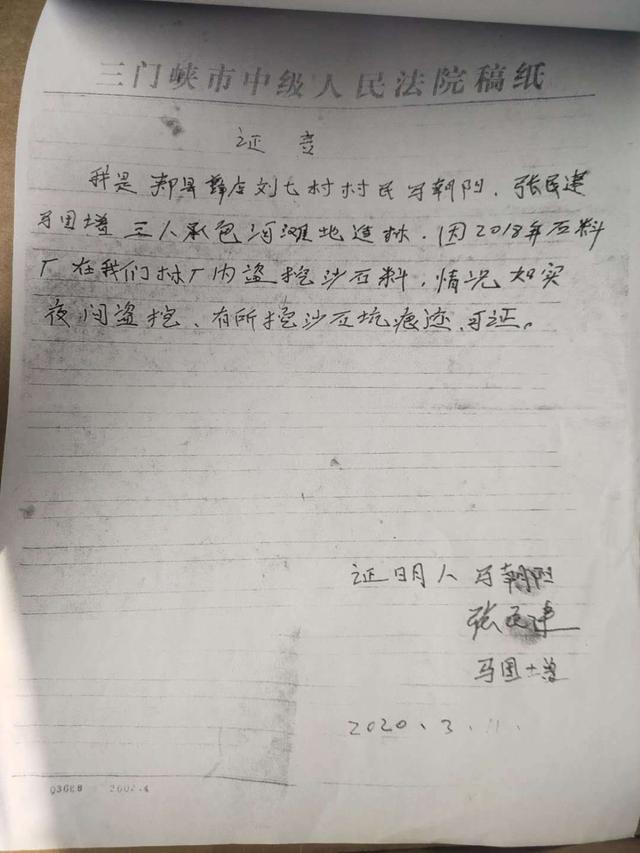 三门峡市中级人民法院稿纸
证言
我是郏县薛店刘七村村民马朝阳、张民建
马国增三人承包河滩地造林。因2018年石料
厂在我们林厂内盗挖沙石料,情况如实
夜间盗挖、有所挖沙石坑痕迹,可证。
证明人 马朝阳
张民建
马国增
2020.3.11.
Q3688 2002.4